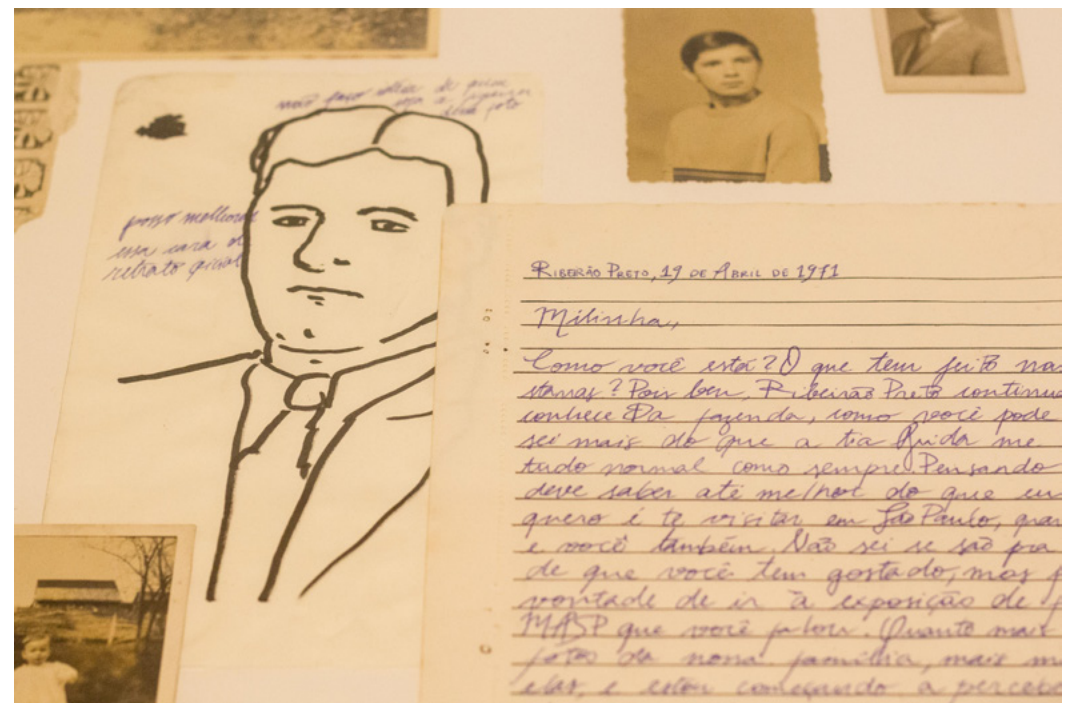 não faço ideia de quem
seja a pessoa
desta foto
posso melhorar
essa cara de
retrato
RIBEIRÃO PRETO, 19 DE ABRIL DE 1971
Milinha,
Como você está? O que tem feito nas
Pois bem, Ribeirão Preto continua
conhece Da fazenda, como você pode
sei mais do que a tia Guida me
tudo normal como sempre Pensando
deve saber até melhor do que eu
quero é te visitar em São Paulo,
e você também. Não sei se são pra
de que você tem gostado, mas
vontade de ir à exposição de
MASP que você falou. Quanto mais
fotos da nossa família, mais
elas, e estou começando a perceber